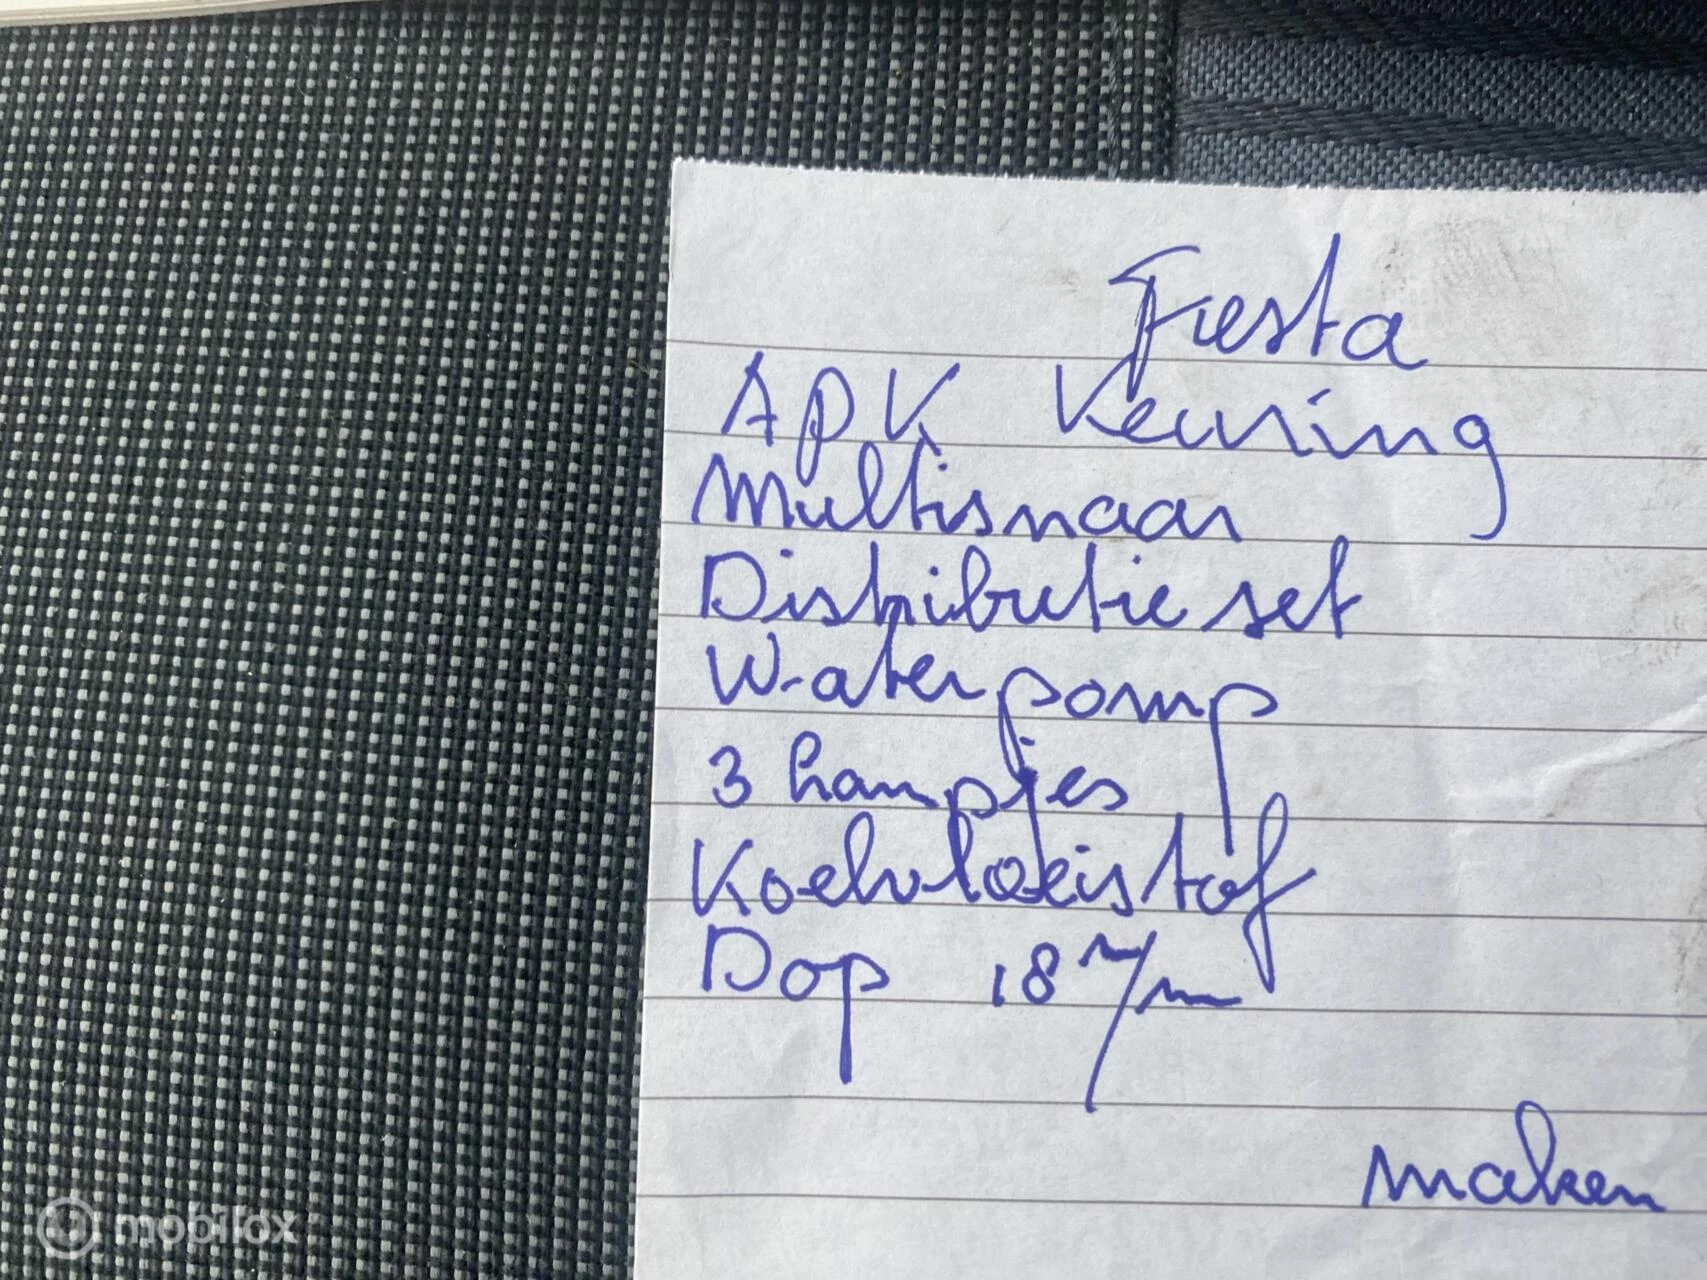 Fiesta
APK Keuring
Multisnaar
Distributie set
Waterpomp
3 hampjes
Koelvloeistof
Dop 18 m/m
maken
mobilox